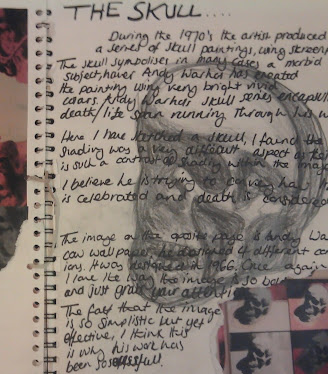 THE SKULL....
During the 1970's the artist produced
a series of skull paintings, using screenp
The skull symbolises in many cases a morbid
subject, however Andy Warhol has created
the painting using very bright vivid
colours. Andy Warhols skull series encapsul
death/life span running through his w
Here I have sketched a skull, I found the
shading was a very difficult aspect as
is such a contrast of shading within the image
I believe he is trying to convey how
is celebrated and death is considered
The image on the opposite page is Andy Wa
cow wall paper, he designed 4 different co
ions. It was designed in 1966. Once again
I love the way the image is so bold
and just grabs your attention
The fact that the image
is so simplistic but yet
effective, I think this
is why his work has
been so successfull.